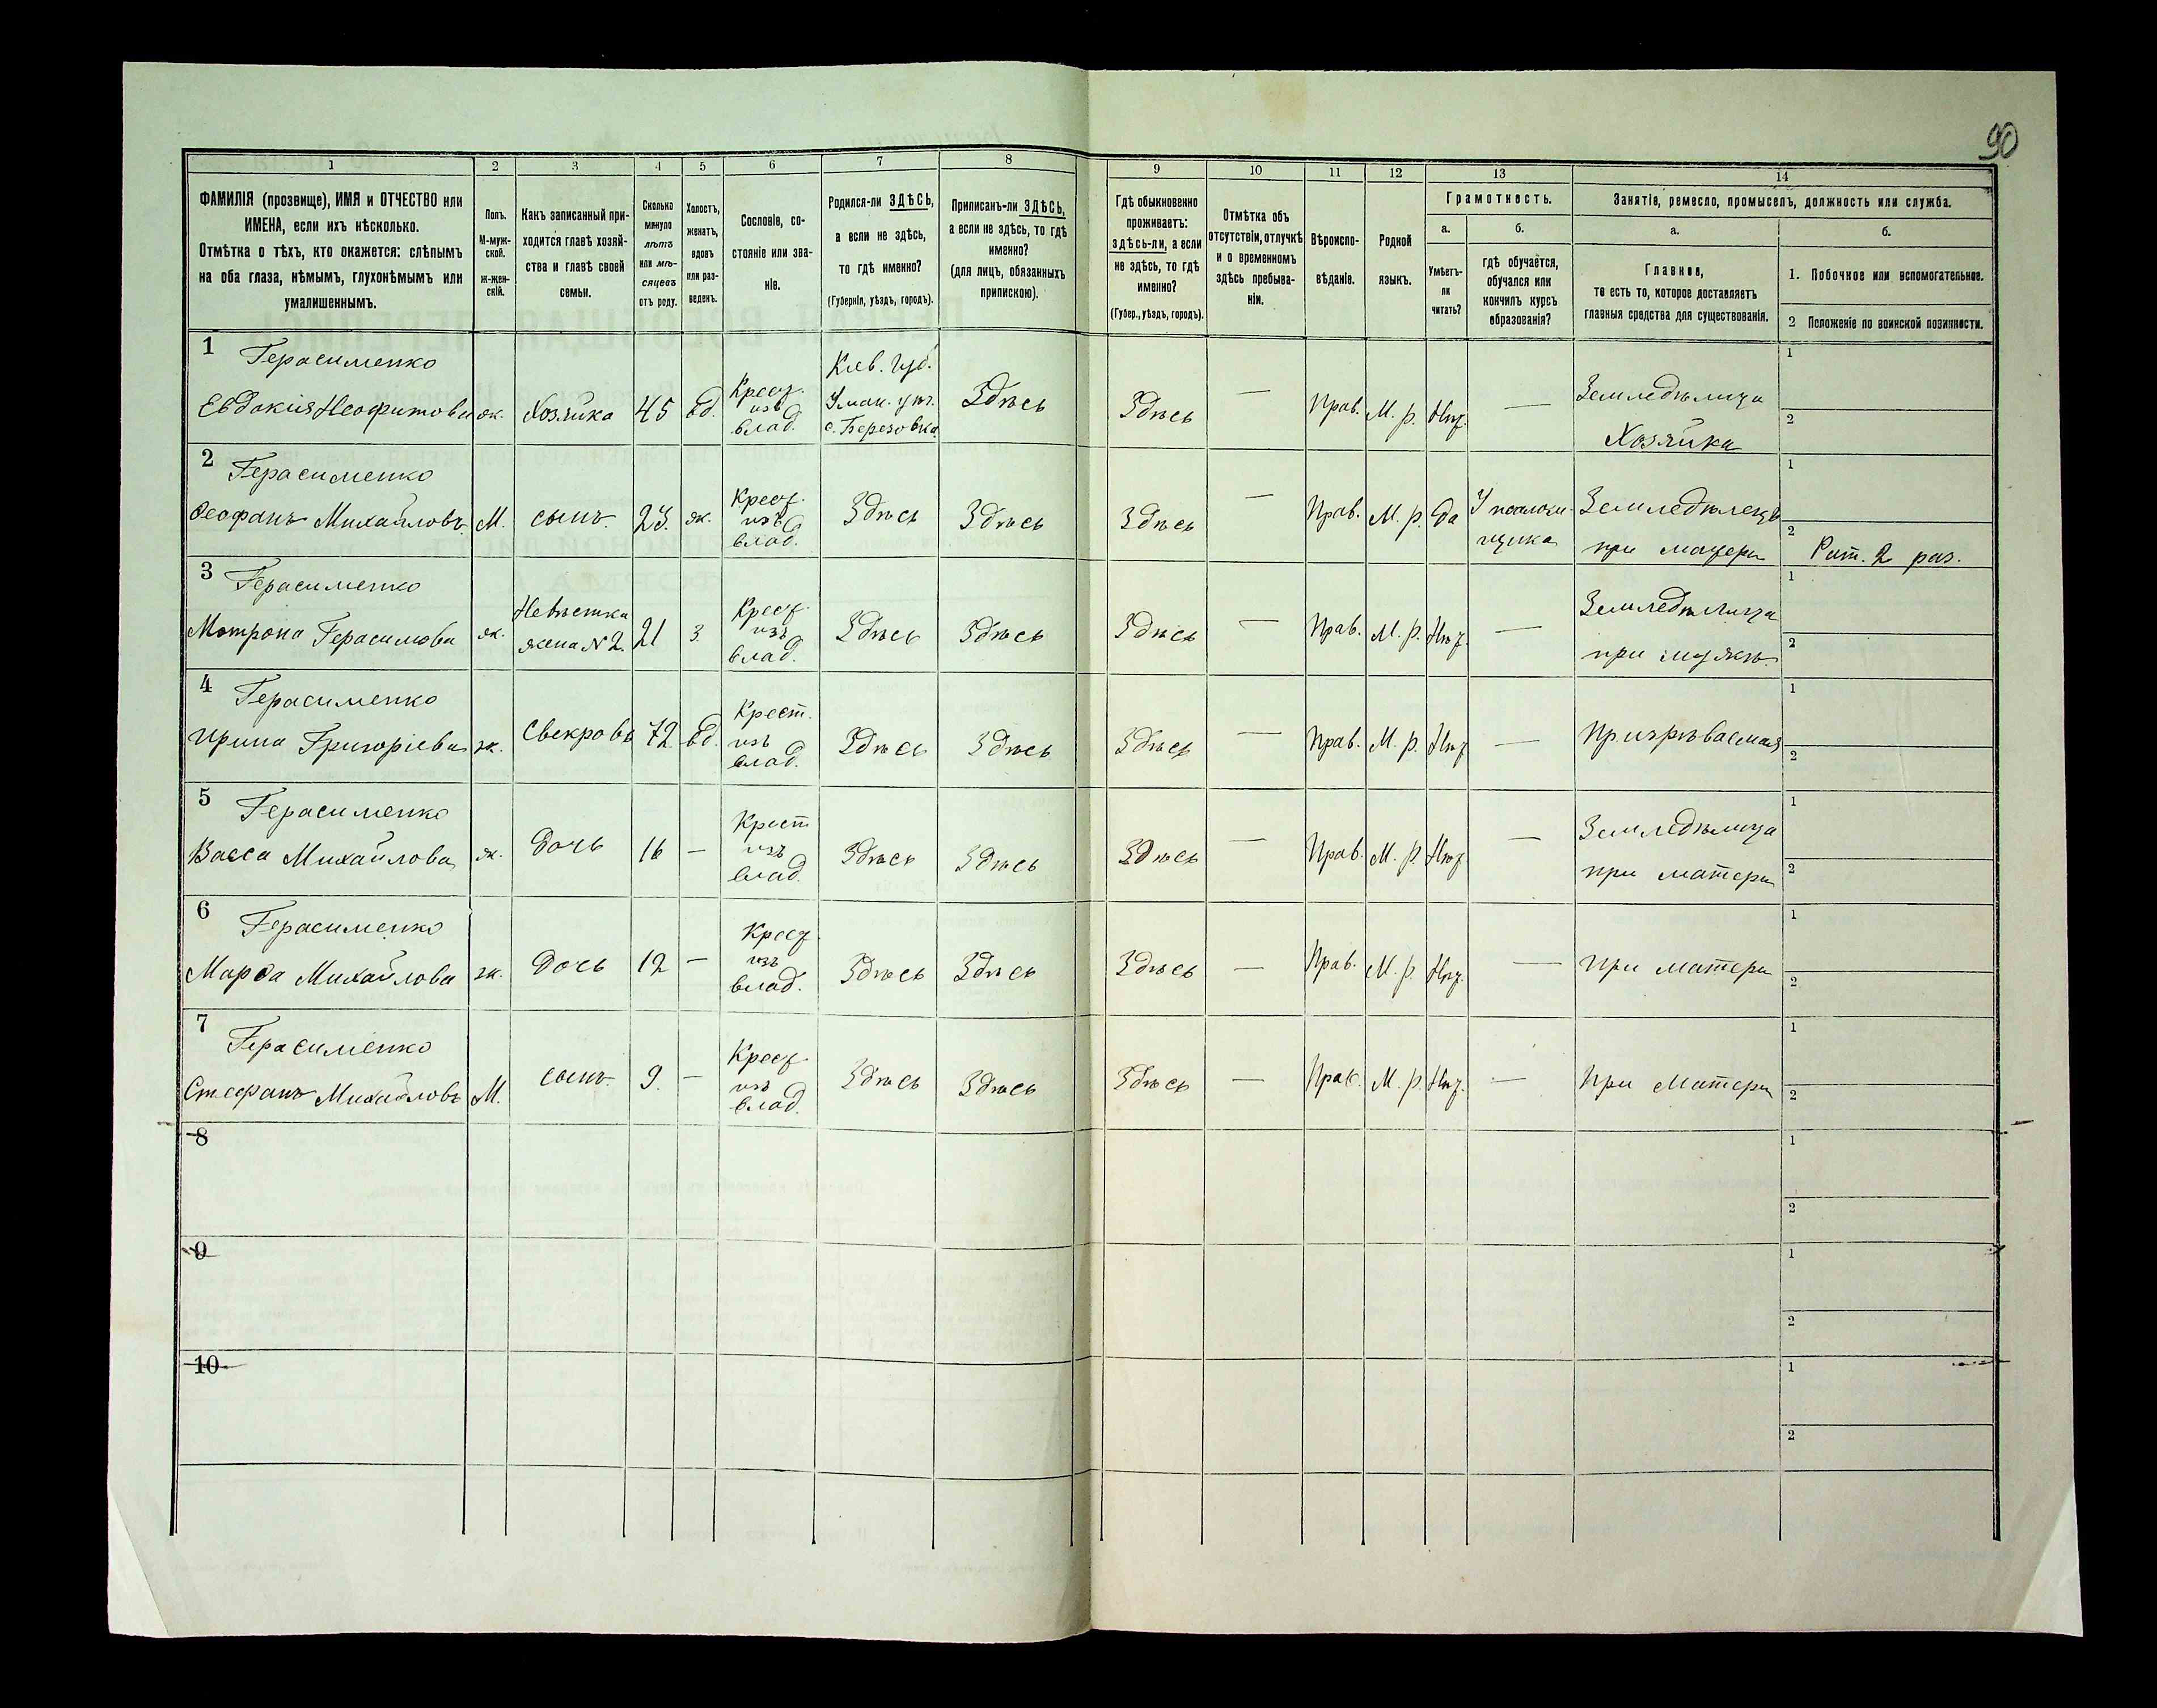 90
1 2 3 4 5 6 7 8 9 10 11 12 13 14
ФАМИЛІЯ (прозвище), ИМЯ и ОТЧЕСТВО или
ИМЕНА, если ихъ нѣсколько.
Отмѣтка о тѣхъ, кто окажется: слѣпымъ
на оба глаза, нѣмымъ, глухонѣмымъ или
умалишеннымъ.
Полъ.
М-муж-
ской.
ж-жен-
скій.
Какъ записанный при-
ходится главѣ хозяй-
ства и главѣ своей
семьи.
Сколько
минуло
лѣтъ
или мѣ-
сяцевъ
отъ роду.
Холостъ,
женатъ,
вдовъ
или раз-
веденъ.
Сословіе, со-
стояніе или зва-
ніе.
Родился-ли ЗДѢСЬ,
а если не здѣсь,
то гдѣ именно?
(Губернія, уѣздъ, городъ).
Приписанъ-ли ЗДѢСЬ,
а если не здѣсь, то гдѣ
именно?
(для лицъ, обязанныхъ
припискою).
Гдѣ обыкновенно
проживаетъ:
здѣсь-ли, а если
не здѣсь, то гдѣ
именно?
(Губер., уѣздъ, городъ).
Отмѣтка объ
отсутствіи, отлучкѣ
и о временномъ
здѣсь пребыва-
ніи.
Вѣроиспо-
вѣданіе.
Родной
языкъ.
Грамотность.
а.
Умѣетъ-
ли
читать?
б.
гдѣ обучается,
обучался или
кончилъ курсъ
образованія?
Занятіе, ремесло, промыселъ, должность или служба.
а.
Главное,
то есть то, которое доставляетъ
главныя средства для существованія.
б.
1. Побочное или вспомогательное.
2 Положеніе по воинской повинности.
1 Герасименко
Евдокія Неофитова ж. Хозяйка 45 вд.
Крест.
изъ
влад.
Кіев. губ.
Уман. уѣз.
с. Березовка
Здѣсь Здѣсь — Прав. М. р. Нѣт. —
Земледѣлица
Хозяйка
1
2
2 Герасименко
Ѳеофанъ Михайловъ М. сынъ. 23. ж.
Крест.
изъ
влад.
Здѣсь Здѣсь Здѣсь — Прав. М. р. да
Земледѣлецъ
при матери
1
2 Рат. 2 раз.
3 Герасименко
Мотрона Герасимова ж.
Невѣстка
жена №2.
21 з.
Крест.
изъ
влад.
Здѣсь Здѣсь Здѣсь — Прав. М. р. Нѣт. —
Земледѣлица
при мужѣ.
1
2
4 Герасименко
Ирина Григоріева ж. Свекровь 72 вд.
Крест.
изъ
влад.
Здѣсь Здѣсь Здѣсь — Прав. М. р. Нѣт — Призрѣваемая
1
2
5 Герасименко
Васса Михайлова ж. Дочь 16 —
Крест
изъ
влад.
Здѣсь Здѣсь Здѣсь — Прав. М. р. Нѣт —
Земледѣлица
при матери
1
2
6 Герасименко
Марѳа Михайлова ж. Дочь 12 —
Крест.
изъ
влад.
Здѣсь Здѣсь Здѣсь — Прав. М. р Нѣт. — При матери
1
2
7 Герасименко
Стефанъ Михайловъ М. сынъ. 9. —
Крест.
изъ
влад.
Здѣсь Здѣсь Здѣсь — Прав. М. р. Нѣт. — При матери
1
2
8
1
2
9
1
2
10
1
2